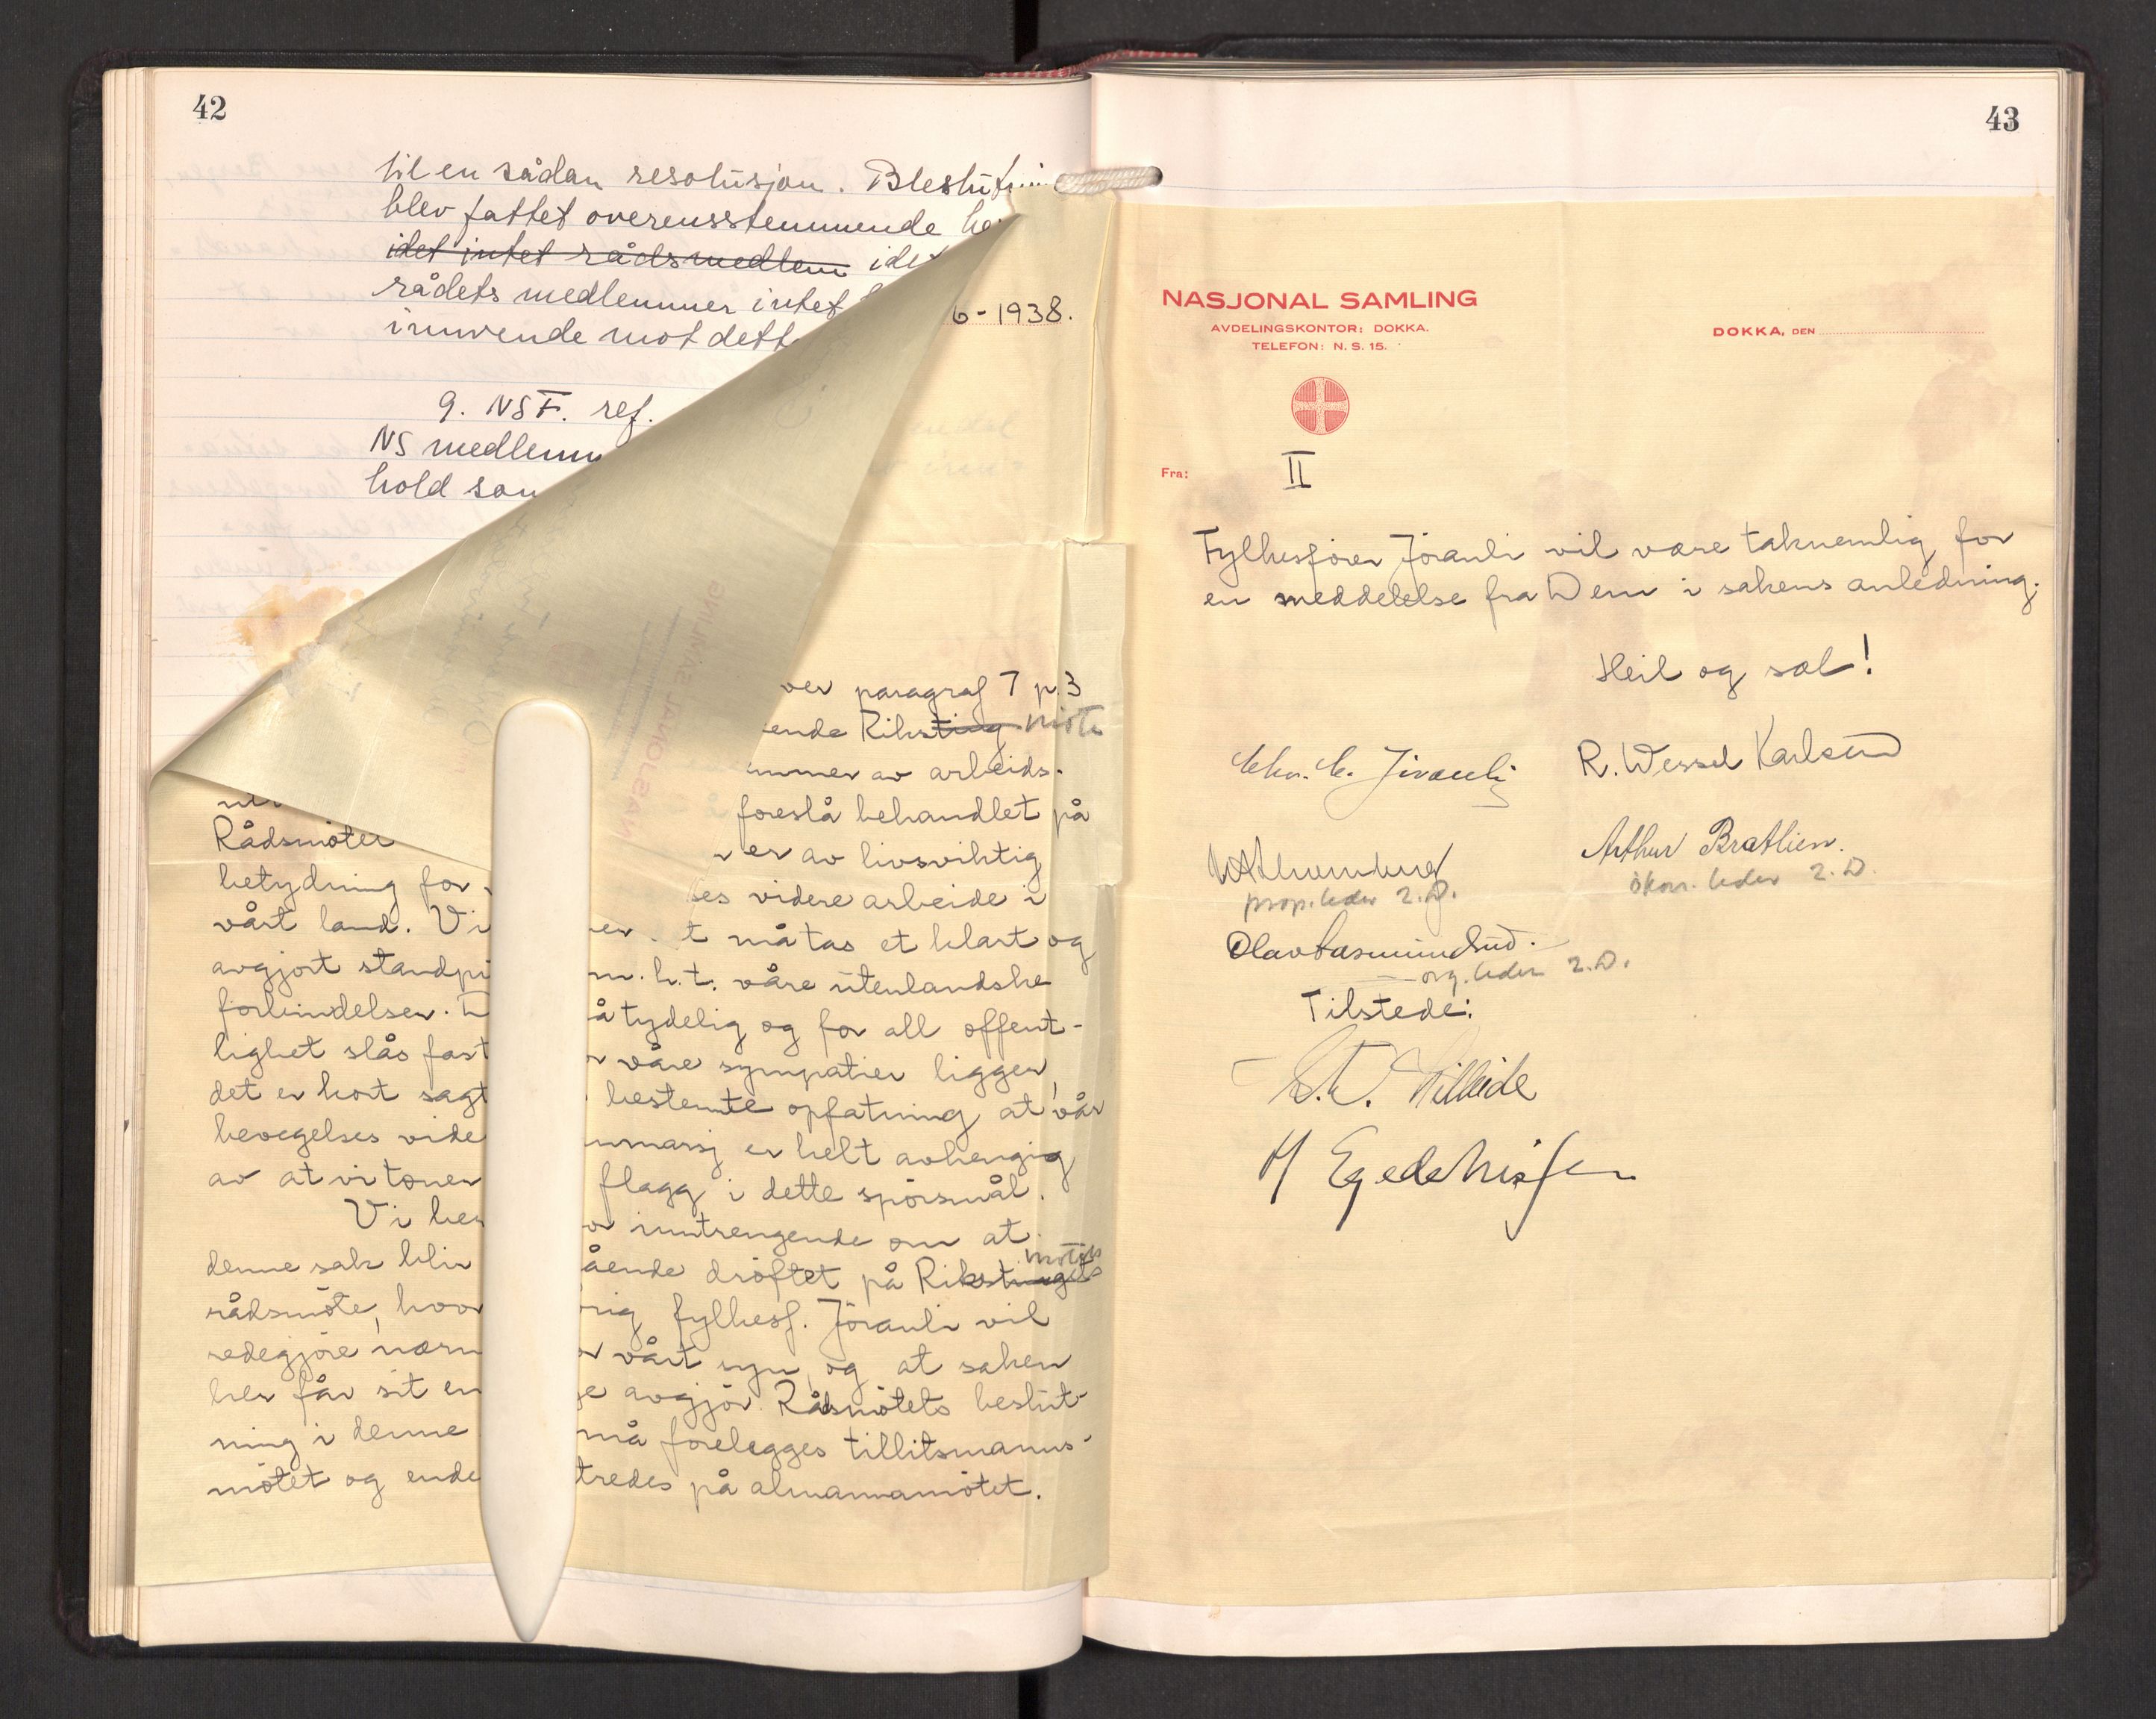 42
til en sådan resolusjon.
blev fattet overensstemmende
idet intet rådsmedlem idet
rådets medlemmer intet
innvende mot dette
9. NSF. ref.
NS medlemm
hold som
6-1938.
ver paragraf 7 p. 3
ende Riksting möte
mmer av arbeids-
foreslå behandlet på
Rådsmöter er av livsviktig
betydning for es videre arbeide i
vårt land. Vi er t må tas et klart og
avgjort standpu m.h.t. våre utenlandske
forbindelser. D å tydelig og for all offent-
lighet slås fast r våre sympatier ligger,
det er kort sagt bestemte opfatning at vår
bevegelses vide nmarsj er helt avhengig
av at vi toner flagg i dette spörsmål.
Vi ber or inntrengende om at
denne sak blir ående dröftet på Rikstings mötets
rådsmöte, hvor rig fylkesf. Jöranli vil
redegjöre nærm or vårt syn, og at saken
her får sit en e avgjör. Rådsmötets beslut-
ning i denne må forelegges tillitsmanns-
mötet og ende tredes på almannamötet.
43
NASJONAL SAMLING
AVDELINGSKONTOR: DOKKA.
TELEFON: N. S. 15.
DOKKA, DEN
Fra:
II
Fylkesförer Jöranli vil være taknemlig for
en meddelelse fra Dem i sakens anledning.
Heil og sæl!
Chr. C. Jöranli R. Wessel Karlsen
Arthur Brathien.
prop. leder 2.D. ökon. leder 2.D.
Olav Aasmundsud.
org. leder 2.D.
Tilstede:
Lilleeide
H Egede Nissen